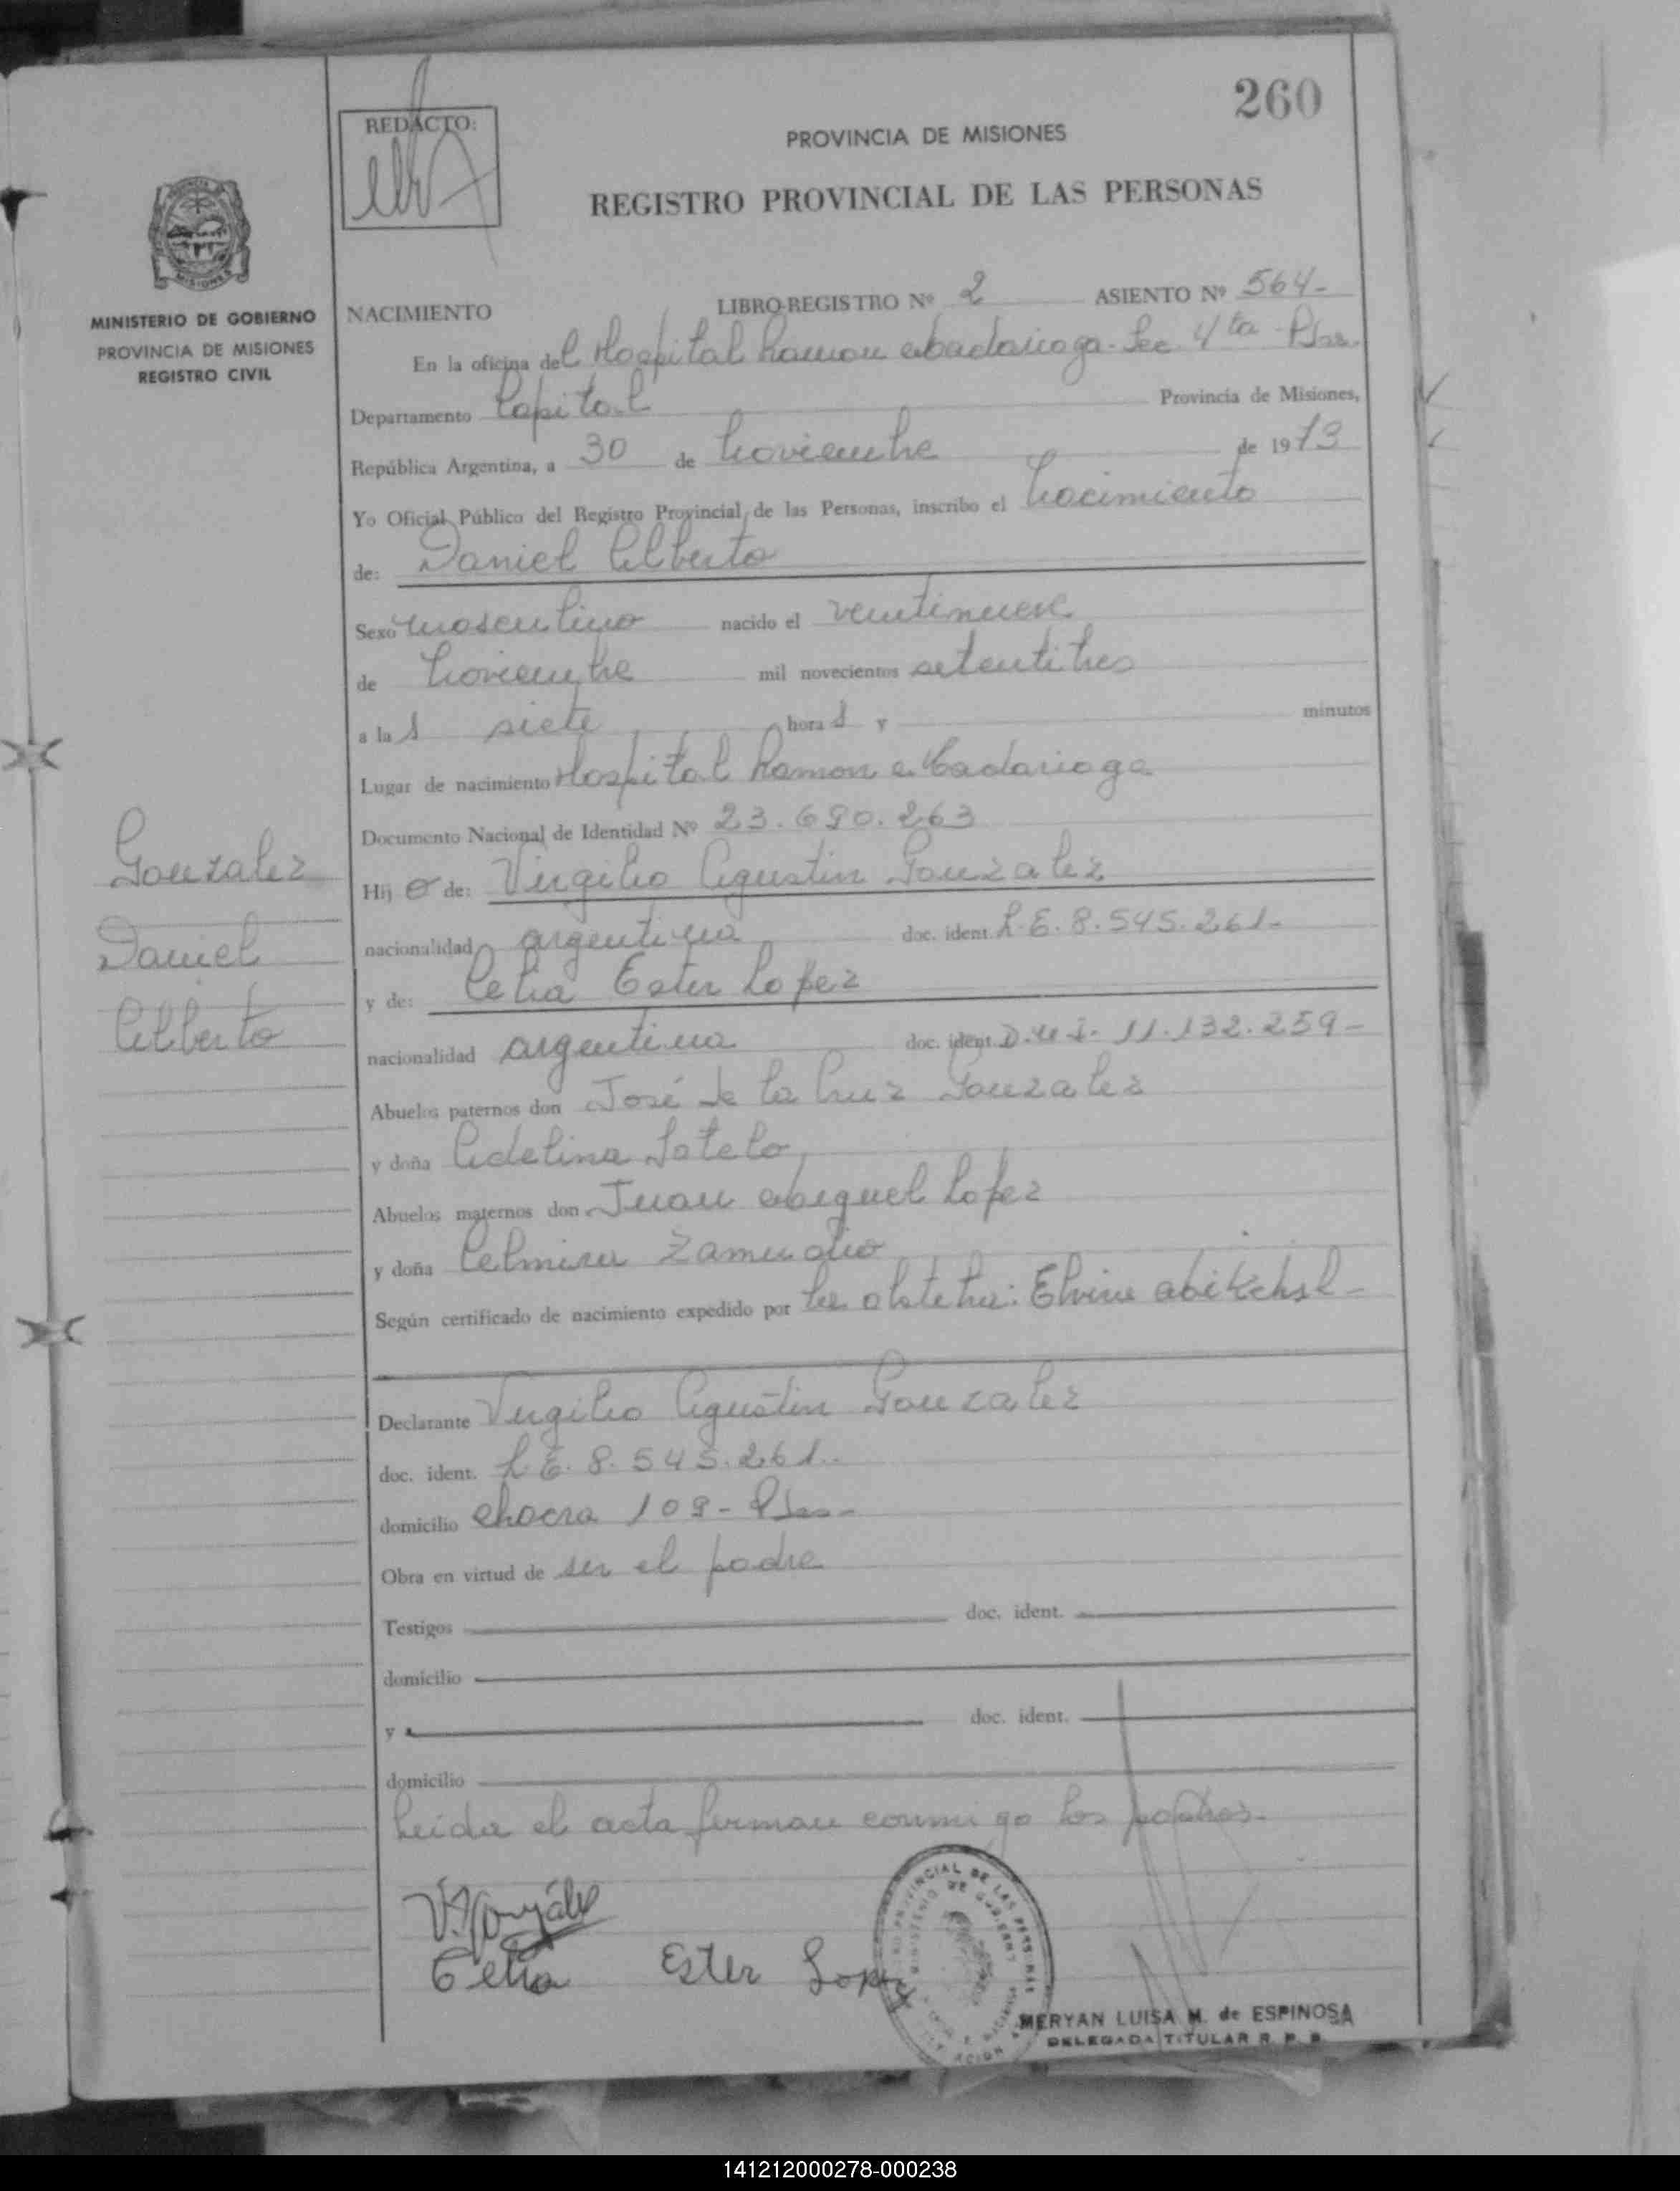 260
REDACTO:
PROVINCIA DE MISIONES
REGISTRO PROVINCIAL DE LAS PERSONAS
MISIONES
MINISTERIO DE GOBIERNO
PROVINCIA DE MISIONES
REGISTRO CIVIL
NACIMIENTO LIBRO-REGISTRO Nº 2 ASIENTO Nº 564-
En la oficina del Hospital Ramon Madariaga - Sec 4ta - Pdas.
Departamento Capital Provincia de Misiones,
República Argentina, a 30 de Noviembre de 1973
Yo Oficial Público del Registro Provincial de las Personas, inscribo el Nacimiento
de: Daniel Alberto
Sexo masculino nacido el veintinueve
de Noviembre mil novecientos setentitres
a las siete horas y minutos
Lugar de nacimiento Hospital Ramon Madariaga
Documento Nacional de Identidad Nº 23.690.263
Hijo de: Virgilio Agustin Gonzalez
nacionalidad argentina doc. ident. L.E. 8.545.261-
y de: Celia Ester Lopez
nacionalidad argentina doc. ident. D.N.I. 11.132.259-
Abuelos paternos don José de la Cruz Gonzalez
y doña Adelina Sotelo
Abuelos maternos don Juan Miguel Lopez
y doña Celmira Zamudio
Según certificado de nacimiento expedido por la obstetra: Elvira
Gonzalez
Daniel
Alberto
Declarante Virgilio Agustin Gonzalez
doc. ident. L.E. 8.545.261-
domicilio Chacra 109 - Pdas-
Obra en virtud de ser el padre
Testigos doc. ident.
domicilio
y doc. ident.
domicilio
Leida el acta firman conmigo los padres-
V.A. González
Celia Ester Lopez
MERYAN LUISA M. de ESPINOSA
DELEGADA TITULAR R. P. P.
141212000278-000238